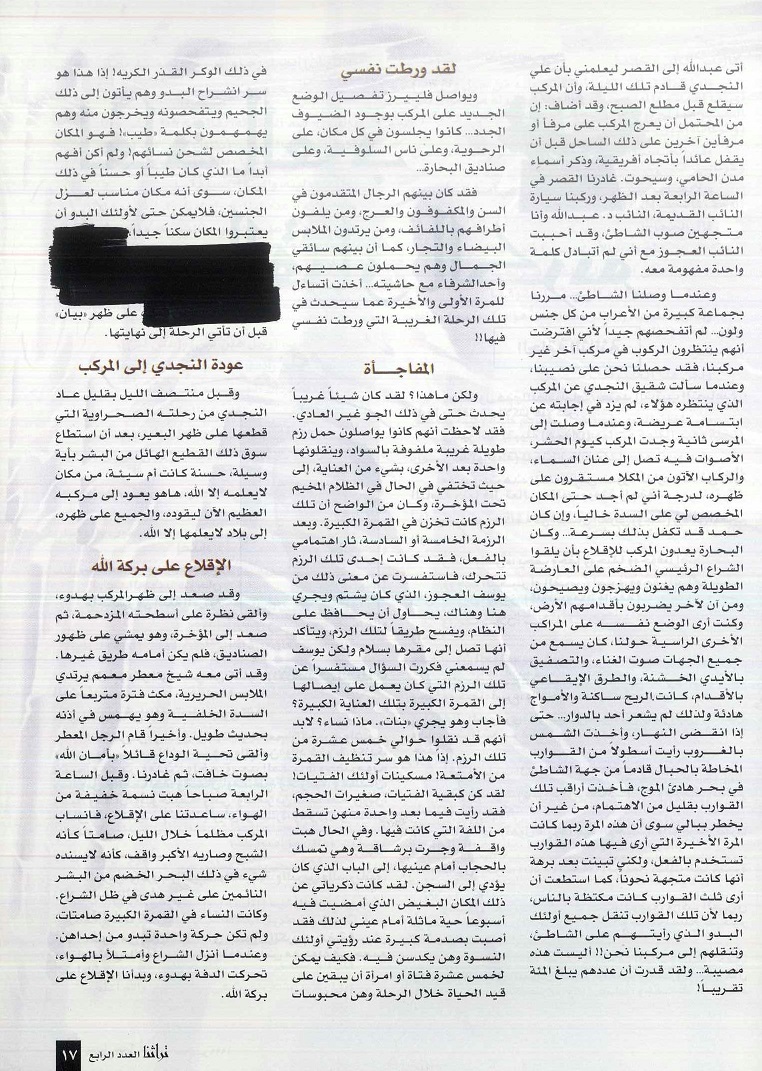 أتى عبدالله إلى القصر ليعلمني بأن علي
النجدي قادم تلك الليلة، وأن المركب
سيقلع قبل مطلع الصبح، وقد أضاف: إن
من المحتمل أن يعرج المركب على مرفأ أو
مرفأين آخرين على ذلك الساحل قبل أن
يقفل عائداً بأتجاه أفريقية، وذكر أسماء
مدن الحامي، وسيحوت. غادرنا القصر في
الساعة الرابعة بعد الظهر، وركبنا سيارة
النائب القديمة، النائب د. عبدالله وأنا
متجهين صوب الشاطئ، وقد أحببت
النائب العجوز مع أني لم أتبادل كلمة
واحدة مفهومة معه.
وعندما وصلنا الشاطئ... مررنا
بجماعة كبيرة من الأعراب من كل جنس
ولون... لم أتفحصهم جيداً لأني افترضت
أنهم ينتظرون الركوب في مركب آخر غير
مركبنا، فقد حصلنا نحن على نصيبنا،
وعندما سألت شقيق النجدي عن المركب
الذي ينتظره هؤلاء، لم يزد في إجابته عن
ابتسامة عريضة، وعندما وصلت إلى
المرسى ثانية وجدت المركب كيوم الحشر،
الأصوات فيه تصل إلى عنان السماء،
والركاب الآتون من المكلا مستقرون على
ظهره، لدرجة أني لم أجد حتى المكان
المخصص لي على السدة خالياً، وإن كان
حمد قد تكفل بذلك بسرعة... وكان
البحارة يعدون المركب للإقلاع بأن يلقوا
الشراع الرئيسي الضخم على العارضة
الطويلة وهم يغنون ويهزجون ويصيحون،
ومن آن لآخر يضربون بأقدامهم الأرض،
وكنت أرى الوضع نفسه على المراكب
الأخرى الراسية حولنا، كان يسمع من
جميع الجهات صوت الغناء، والتصفيق
بالأيدي الخشنة، والطرق الإيقاعي
بالأقدام، كانت الريح ساكنة والأمواج
هادئة ولذلك لم يشعر أحد بالدوار... حتى
إذا انقضى النهار، وأخذت الشمس
بالغروب رأيت أسطولاً من القوارب
المخاطة بالحبال قادماً من جهة الشاطئ
في بحر هادئ الموج، فأخذت أراقب تلك
القوارب بقليل من الاهتمام، من غير أن
يخطر ببالي سوى أن هذه المرة ربما كانت
المرة الأخيرة التي أرى فيها هذه القوارب
تستخدم بالفعل، ولكني تبينت بعد برهة
أنها كانت متجهة نحونا، كما استطعت أن
أرى ثلث القوارب كانت مكتظة بالناس،
ربما لأن تلك القوارب تنقل جميع أولئك
البدو الذي رأيتهم على الشاطئ،
وتنقلهم إلى مركبنا نحن!! أليست هذه
مصيبة... ولقد قدرت أن عددهم يبلغ المئة
تقريباً!
لقد ورطت نفسي
ويواصل فلييرز تفصيل الوضع
الجديد على المركب بوجود الضيوف
الجدد... كانوا يجلسون في كل مكان، على
الرحوية، وعلى ناس السلوفية، وعلى
صناديق البحارة...
فقد كان بينهم الرجال المتقدمون في
السن والمكفوفون والعرج، ومن يلفون
أطرافهم باللفائف، ومن يرتدون الملابس
البيضاء والتجار، كما أن بينهم سائقي
الجمال وهم يحملون عصيهم،
وأحد الشرفاء مع حاشيته... أخذت أتساءل
للمرة الأولى والأخيرة عما سيحدث في
تلك الرحلة الغريبة التي ورطت نفسي
فيها!!
المفاجأة
ولكن ماهذا؟ لقد كان شيئاً غريباً
يحدث حتى في ذلك الجو غير العادي.
فقد لاحظت أنهم كانوا يواصلون حمل رزم
طويلة غريبة ملفوفة بالسواد، وينقلونها
واحدة بعد الأخرى، بشيء من العناية، إلى
حيث تختفي في الحال في الظلام المخيم
تحت المؤخرة، وكان من الواضح أن تلك
الرزم كانت تخزن في القمرة الكبيرة. وبعد
الرزمة الخامسة أو السادسة، ثار اهتمامي
بالفعل، فقد كانت إحدى تلك الرزم
تتحرك، فاستفسرت عن معنى ذلك من
يوسف العجوز، الذي كان يشتم ويجري
هنا وهناك، يحاول أن يحافظ على
النظام، ويفسح طريقاً لتلك الرزم، ويتأكد
أنها تصل إلى مقرها بسلام ولكن يوسف
لم يسمعني فكررت السؤال مستفسراً عن
تلك الرزم التي كان يعمل على إيصالها
إلى القمرة الكبيرة بتلك العناية الكبيرة؟
فأجاب وهو يجري «بنات». ماذا نساء؟ لابد
أنهم قد نقلوا حوالي خمس عشرة من
تلك الرزم. إذاً هذا هو سر تنظيف القمرة
من الأمتعة! مسكينات أولئك الفتيات!
لقد كن كبقية الفتيات، صغيرات الحجم،
فقد رأيت فيما بعد واحدة منهن تسقط
من اللفة التي كانت فيها. وفي الحال هبت
واقفة وجرت برشاقة وهي تمسك
بالحجاب أمام عينيها، إلى الباب الذي كان
يؤدي إلى السجن. لقد كانت ذكرياتي عن
ذلك المكان البغيض الذي أمضيت فيه
أسبوعاً حية ماثلة أمام عيني لذلك فقد
أصبت بصدمة كبيرة عند رؤيتي أولئك
النسوة وهن يكدسن فيه. فكيف يمكن
لخمس عشرة فتاة أو امرأة أن يبقين على
قيد الحياة خلال الرحلة وهن محبوسات
في ذلك الوكر القذر الكريه! إذا هذا هو
سر انشراح البدو وهم يأتون إلى ذلك
الجحيم ويتفحصونه ويخرجون منه وهم
يهمهمون بكلمة «طيب»! فهو المكان
المخصص لشحن نسائهم! ولم أكن أفهم
أبداً ما الذي كان طيباً أو حسناً في ذلك
المكان، سوى أنه مكان مناسب لعزل
الجنسين، فلايمكن حتى لأولئك البدو أن
يعتبروا المكان سكناً جيداً.
على ظهر «بيان»
قبل أن تأتي الرحلة إلى نهايتها.
عودة النجدي إلى المركب
وقبل منتصف الليل بقليل عاد
النجدي من رحلته الصحراوية التي
قطعها على ظهر البعير، بعد أن استطاع
سوق ذلك القطيع الهائل من البشر بأية
وسيلة، حسنة كانت أم سيئة، من مكان
لايعلمه إلا الله، هاهو يعود إلى مركبه
العظيم الآن ليقوده، والجميع على ظهره،
إلى بلاد لايعلمها إلا الله.
الإقلاع على بركة الله
وقد صعد إلى ظهر المركب بهدوء،
وألقى نظرة على أسطحته المزدحمة، ثم
صعد إلى المؤخرة، وهو يمشي على ظهور
الصناديق، فلم يكن أمامه طريق غيرها.
وقد أتى معه شيخ معطر معمم يرتدي
الملابس الحريرية، مكث فترة متربعاً على
السدة الخلفية وهو يهمس في أذنه
بحديث طويل. وأخيراً قام الرجل المعطر
وألقى تحية الوداع قائلاً «بأمان الله»
بصوت خافت، ثم غادرنا. وقبل الساعة
الرابعة صباحاً هبت نسمة خفيفة من
الهواء، ساعدتنا على الإقلاع، فانساب
المركب مظلماً خلال الليل، صامتاً كأنه
الشبح وصاريه الأكبر واقف، كأنه لايسنده
شيء في ذلك البحر الخضم من البشر
النائمين على غير هدى في ظل الشراع.
وكانت النساء في القمرة الكبيرة صامتات،
ولم تكن حركة واحدة تبدو من إحداهن.
وعندما أنزل الشراع وأمتلأ بالهواء،
تحركت الدفة بهدوء، وبدأنا الإقلاع على
بركة الله.
تراثنا العدد الرابع ١٧